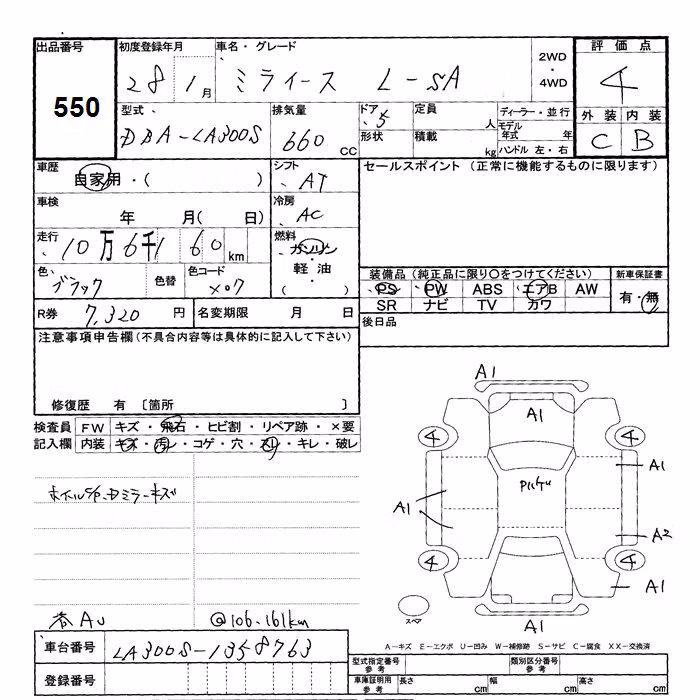 出品番号
550
初度登録年月
28 1月
車名・グレード
ミライース L-SA
2WD
・
4WD
評価点
4
外装 内装
C B
型式
DBA-LA300S
排気量
660 CC
ドア
5
形状
定員
人
積載
kg
ディーラー・並行
モデル年式 年
ハンドル 左・右
車歴
自家用・( )
シフト
AT
車検
年 月( 日)
冷房
AC
走行
10万6千160km
燃料
ガソリン
・
軽油
( )
色
ブラック
色替
色コード
X07
R券 7,320 円
名変期限 月 日
セールスポイント (正常に機能するものに限ります)
装備品 (純正品に限り○をつけてください)
PS PW ABS エアB AW
SR ナビ TV カワ
新車保証書
有・無
後日品
注意事項申告欄(不具合内容等は具体的に記入して下さい)
修復歴 有 [箇所 ]
検査員記入欄
FW キズ・飛石・ヒビ割・リペア跡・×要
内装 キズ・汚レ・コゲ・穴・スリ・キレ・破レ
ホイルS/P、Dミラーキズ
@106.161km
車台番号
LA300S-1358763
登録番号
A1
A1
4 4
A1
A1
A2
4 4
A1
スペア
A1
A-キズ E-エクボ U-凹み W-補修跡 S-サビ C-腐食 XX-交換済
型式指定番号 参考
類別区分番号 参考
車庫証明用 参考
長さ cm
幅 cm
高さ cm